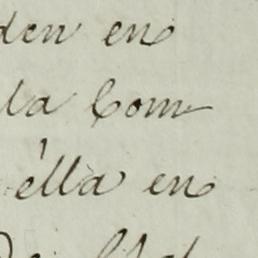 den en
la Com
élla en